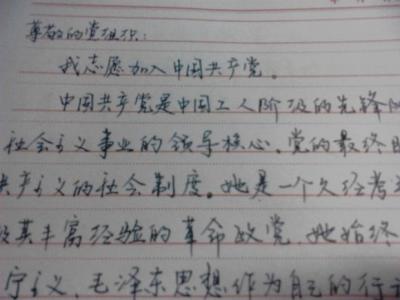 尊敬的党组织:
我志愿加入中国共产党。
中国共产党是中国工人阶级的先锋
社会主义事业的领导核心。党的最终目
共产主义的社会制度。她是一个久经考
及其丰富经验的革命政党,她始终
宁主义、毛泽东思想作为自己的行